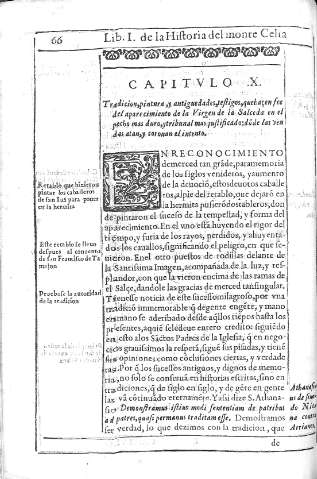 66
Lib. I. de la Historia del monte Celia
CAPITVLO X.
Tradicion, pintura y antiguedades, testigos, que hazen fee
del aparecimiento de la Virgen de la Salceda en el
pecho mas duro, y tribunal mas justificado: dōde las ven
das atan, y coronan el intento.
EN RECONOCIMIENTO
de merced tan grāde, para memoria
de los siglos venideros, y aumento
de la deuociō, estos deuotos caballe
ros, al pie del retablo, que dexarō en
la hermita pusierō dos tableros, don
de pintaron el sucesso de la tempestad, y forma del
aparecimiento. En el vno está huyendo el rigor del
tiēmpo, y furia de los rayos, perdidos, y ahuyenta
dos los cauallos, significando el peligro, en que se
vieron. En el otro puestos de rodillas delante de
la Santissima Imagen, acompañada de la luz, y res
plandor, con que la vieron encima de las ramas de
el Salçe, dandole las gracias de merced tan singular.
Tienese noticia de este sucesso milagroso, por vna
tradiciō immemorable, q̄ de gente en gēte, y mano
en mano se a deribado desde aq̄llos tiēpos hasta los
presentes, a quiē se le deue entero credito: siguiēdo
en esto a los Sactos Padres de la Iglesia, q̄ en nego-
cios grauissimos la respetā, sigue sus pisadas, y tienē
sus opiniones como cōclusiones ciertas, y verdade
ras. Por q̄ los sucessos antiguos, y dignos de memo-
ria, no solo se conseruā en historias escritas, sino en
tradiciones, q̄ de siglo en siglo, y de gēte en gente
las vā cōtinuādo eternamēte. Y assi dize S. Athana-
sio: Demonstramus istius modi sententiam de patribus
ad patres, quasi per manus traditam esse. Demonstramos
ser verdad, lo que dezimos con la tradicion, que
de
Retablo, que hizierou
pintar los caballeros
de san Luis para poner
en la hermita
Este retablo se lleuo
despues al conuento
de san Francisco de Ta
majon
Prouase la autoridad
de la tradicion
Athanasius